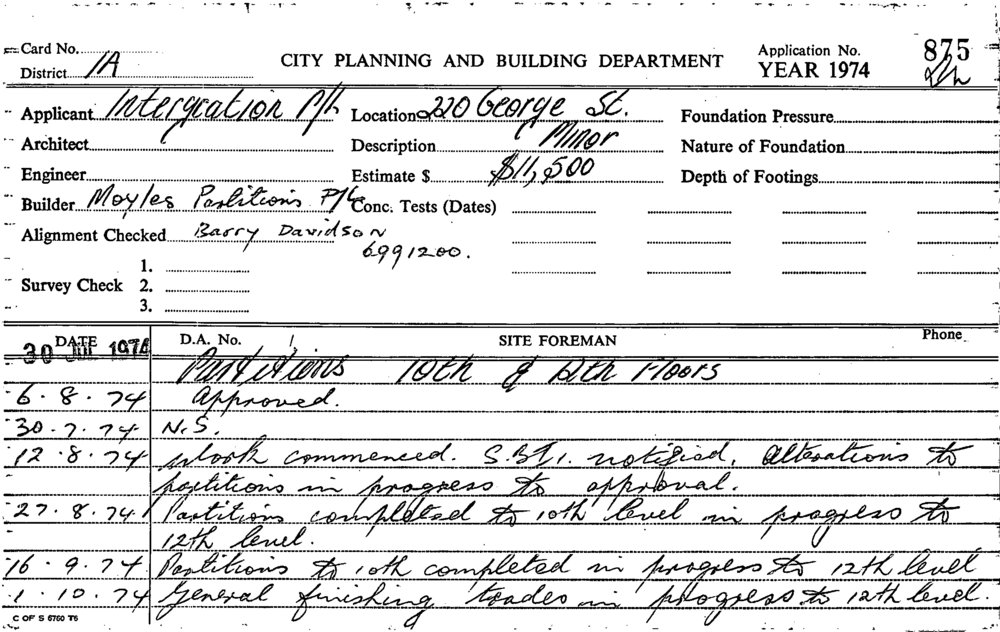 Card No.
District 1A
CITY PLANNING AND BUILDING DEPARTMENT
Application No. 875
YEAR 1974
Applicant Intergration P/L Location 220 George St. Foundation Pressure
Architect Description Minor Nature of Foundation
Engineer Estimate $ $11,500 Depth of Footings
Builder Moyles Partitions P/L Conc. Tests (Dates)
Alignment Checked Barry Davidson
6991200.
1.
Survey Check 2.
3.
DATE D.A. No. / SITE FOREMAN Phone
30 JUL 1974 Partitions 10th & 12th Floors
6.8.74 Approved.
30.7.74 N.S.
12.8.74 Work commenced. S.B.I. notified. Alterations to
partitions in progress to approval.
27.8.74 Partitions completed to 10th level in progress to
12th level.
16.9.74 Partitions to 10th completed in progress to 12th level
1.10.74 General finishing trades in progress to 12th level.
C OF S 6760 T6